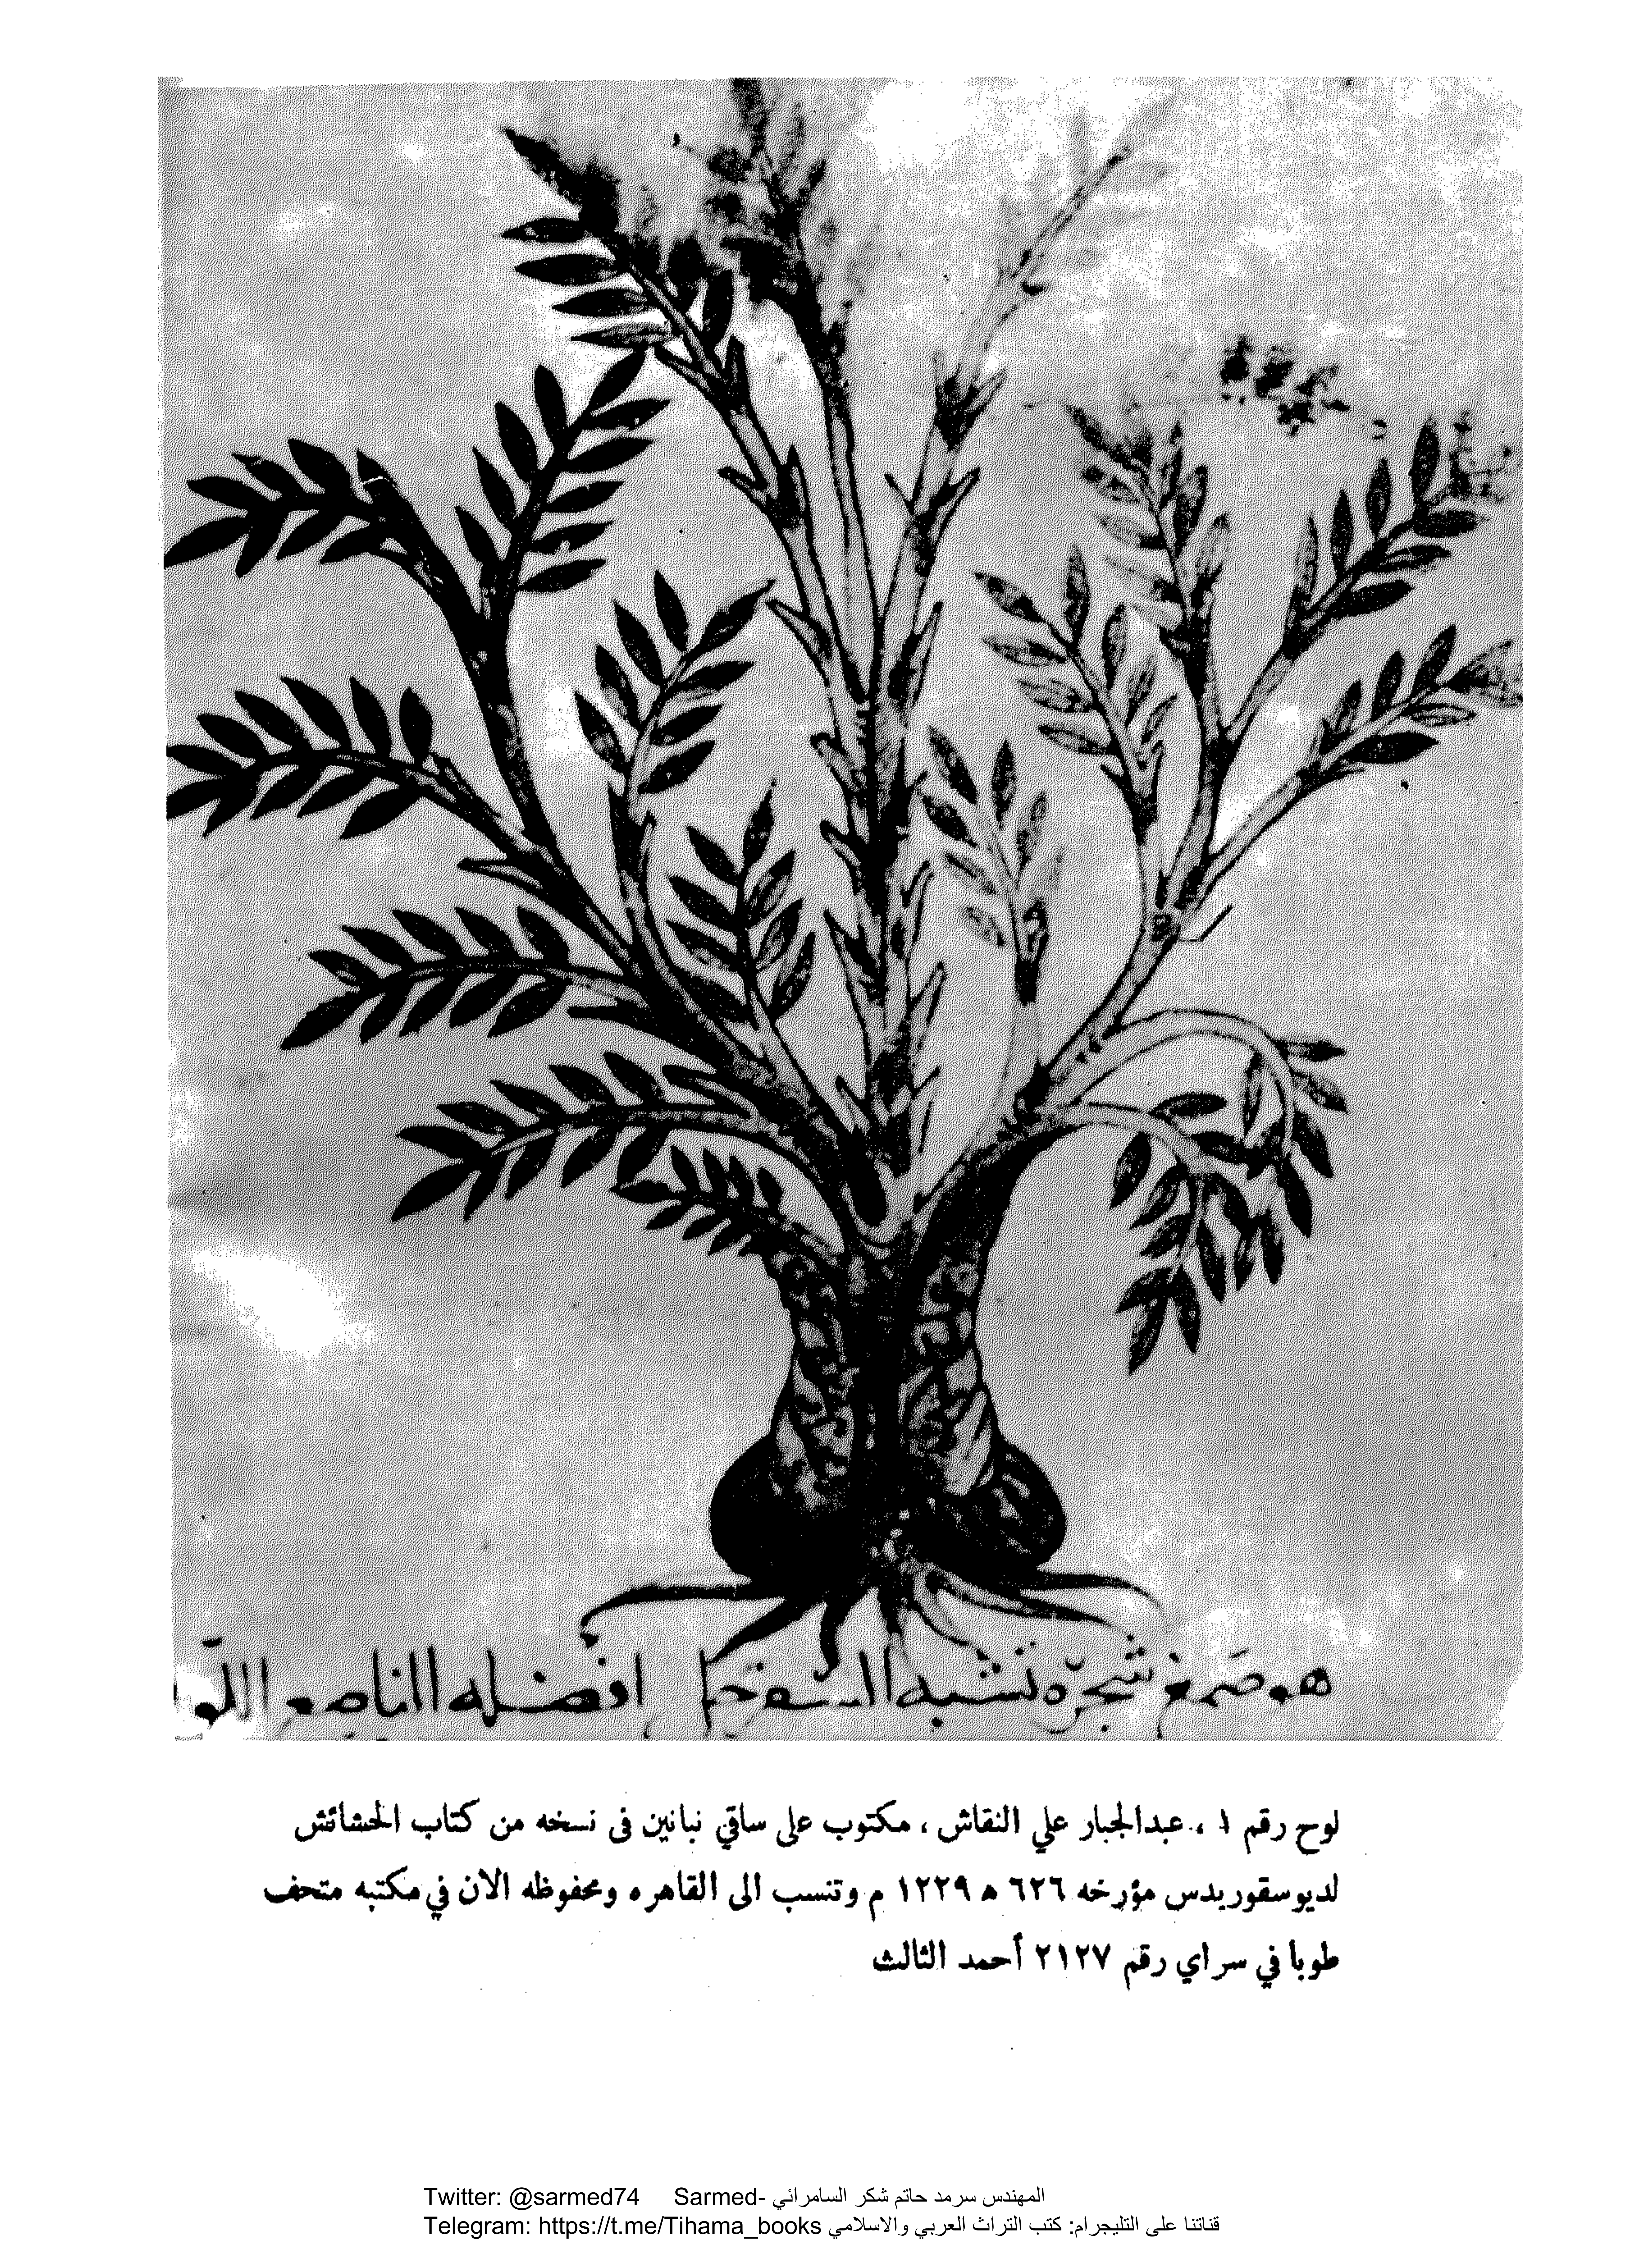 هو صمغ شجره تشبه السفرجل افضله الناصع اللو
لوح رقم ١ ، عبدالجبار علي النقاش ، مكتوب على ساقي نباتين فى نسخه من كتاب الحشائش
لديوسقوريدس مؤرخه ٦٢٦ ه ١٢٢٩ م وتنسب الى القاهره ومحفوظه الان في مكتبه متحف
طوبا في سراي رقم ٢١٢٧ أحمد الثالث
Twitter: @sarmed74 Sarmed- المهندس سرمد حاتم شكر السامرائي
Telegram: https://t.me/Tihama_books قناتنا على التليجرام: كتب التراث العربي والاسلامي